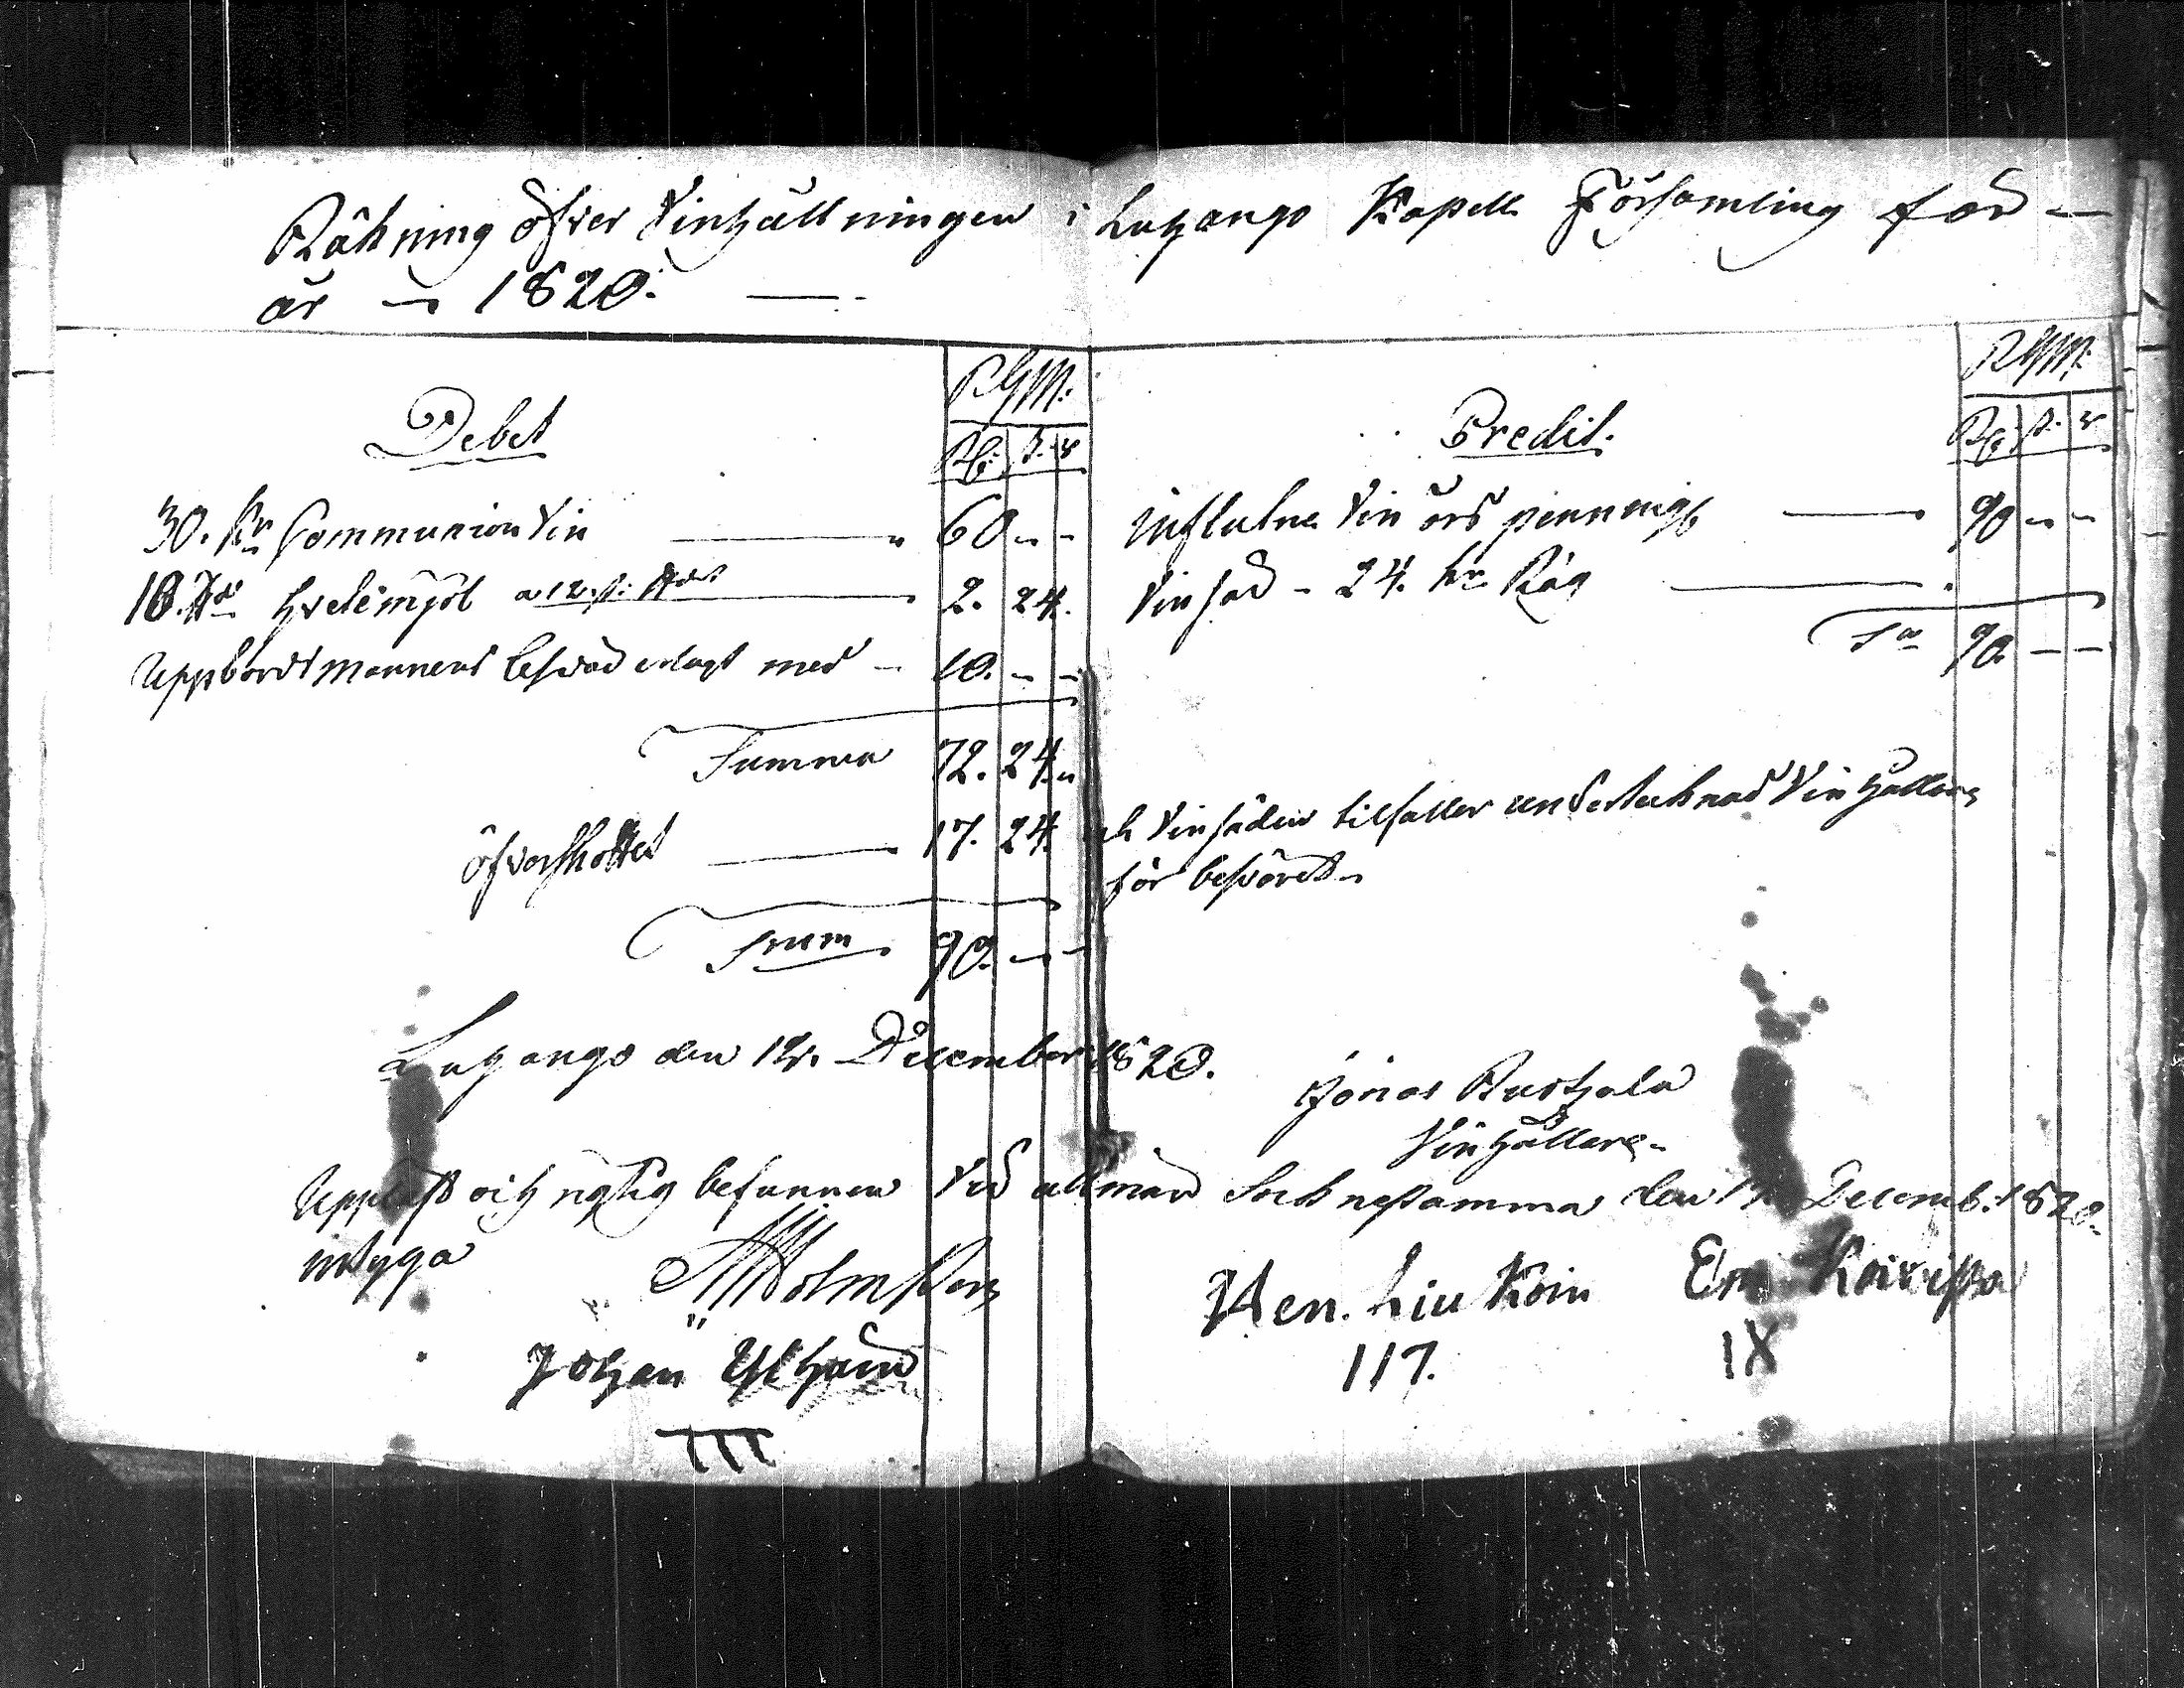 Räkning öfver Vinhållningen i Luhango Kapell Församling för —
år — 1820. —
RGM:
Debet
Rb: s. r
30. Kr Communion Vin — 60 – –
10. Hvetemjöl a 12. s: — 2. 24.
Uppbördsmannens besvär erlagt med — 10. – –
Summa 72. 24. „
Öfverskottet — 17. 24.
Summ 90. – –
RGM:
Credit.
Rb s. r
Influtne Vin örs penningr — 90 – –
Vinsäd – 24. kr Råg —
Sa 90. – –
och Vinsäden tilfaller undertecknad Vinhållare
för besväret –
Luhango den 12. December 1820.
Jonas Rusthala
Vinhållare.
Uppläst och rigtig befunnen vid allmän Socknestamma den Decemb. 1820.
intyga
Holm
Johan Ylhain
III
Hen. Liukoin
117.
Em Koivista
IX